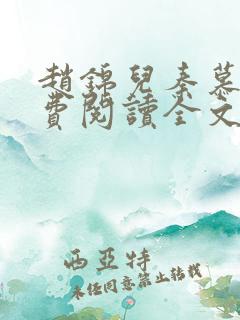 趙錦兒秦慕
費閱讀全文
西亞特
未經同意禁止轉載